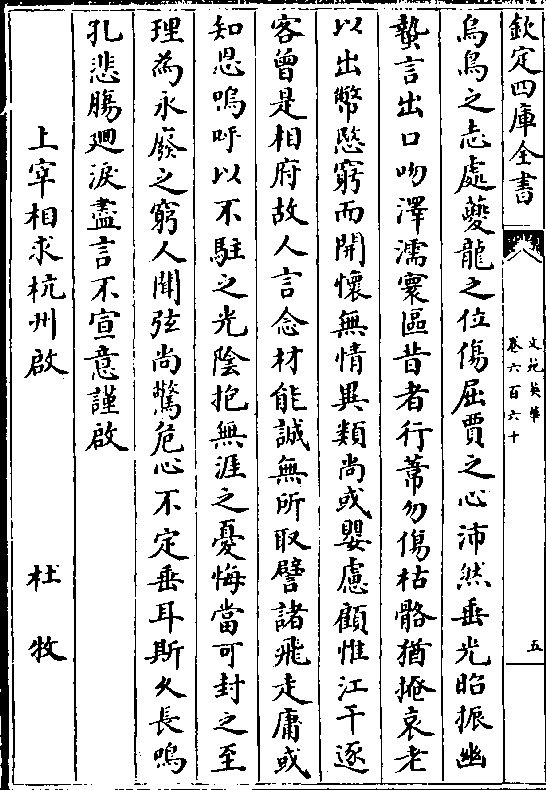 欽定四庫全書
文苑英華
卷六百六十
五
烏鳥之志處夔龍之位傷屈賈之心沛然垂光昭振幽
蟄言出口吻澤濡寰區昔者行葦勿傷枯骼猶掩哀老
以出幣愍窮而開懐無情異類尚或嬰慮顧惟江干逐
客曾是相府故人言念材能誠無所取譬諸飛走庸或
知恩嗚呼以不駐之光陰抱無涯之憂悔當可封之至
理為永廢之窮人聞弦尚驚危心不定垂耳斯久長鳴
孔悲膓迴淚盡言不宣意謹啟
上宰相求杭州啟
杜牧